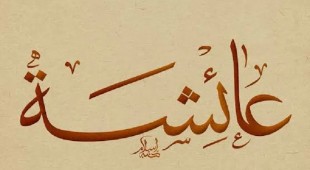 عائِشة